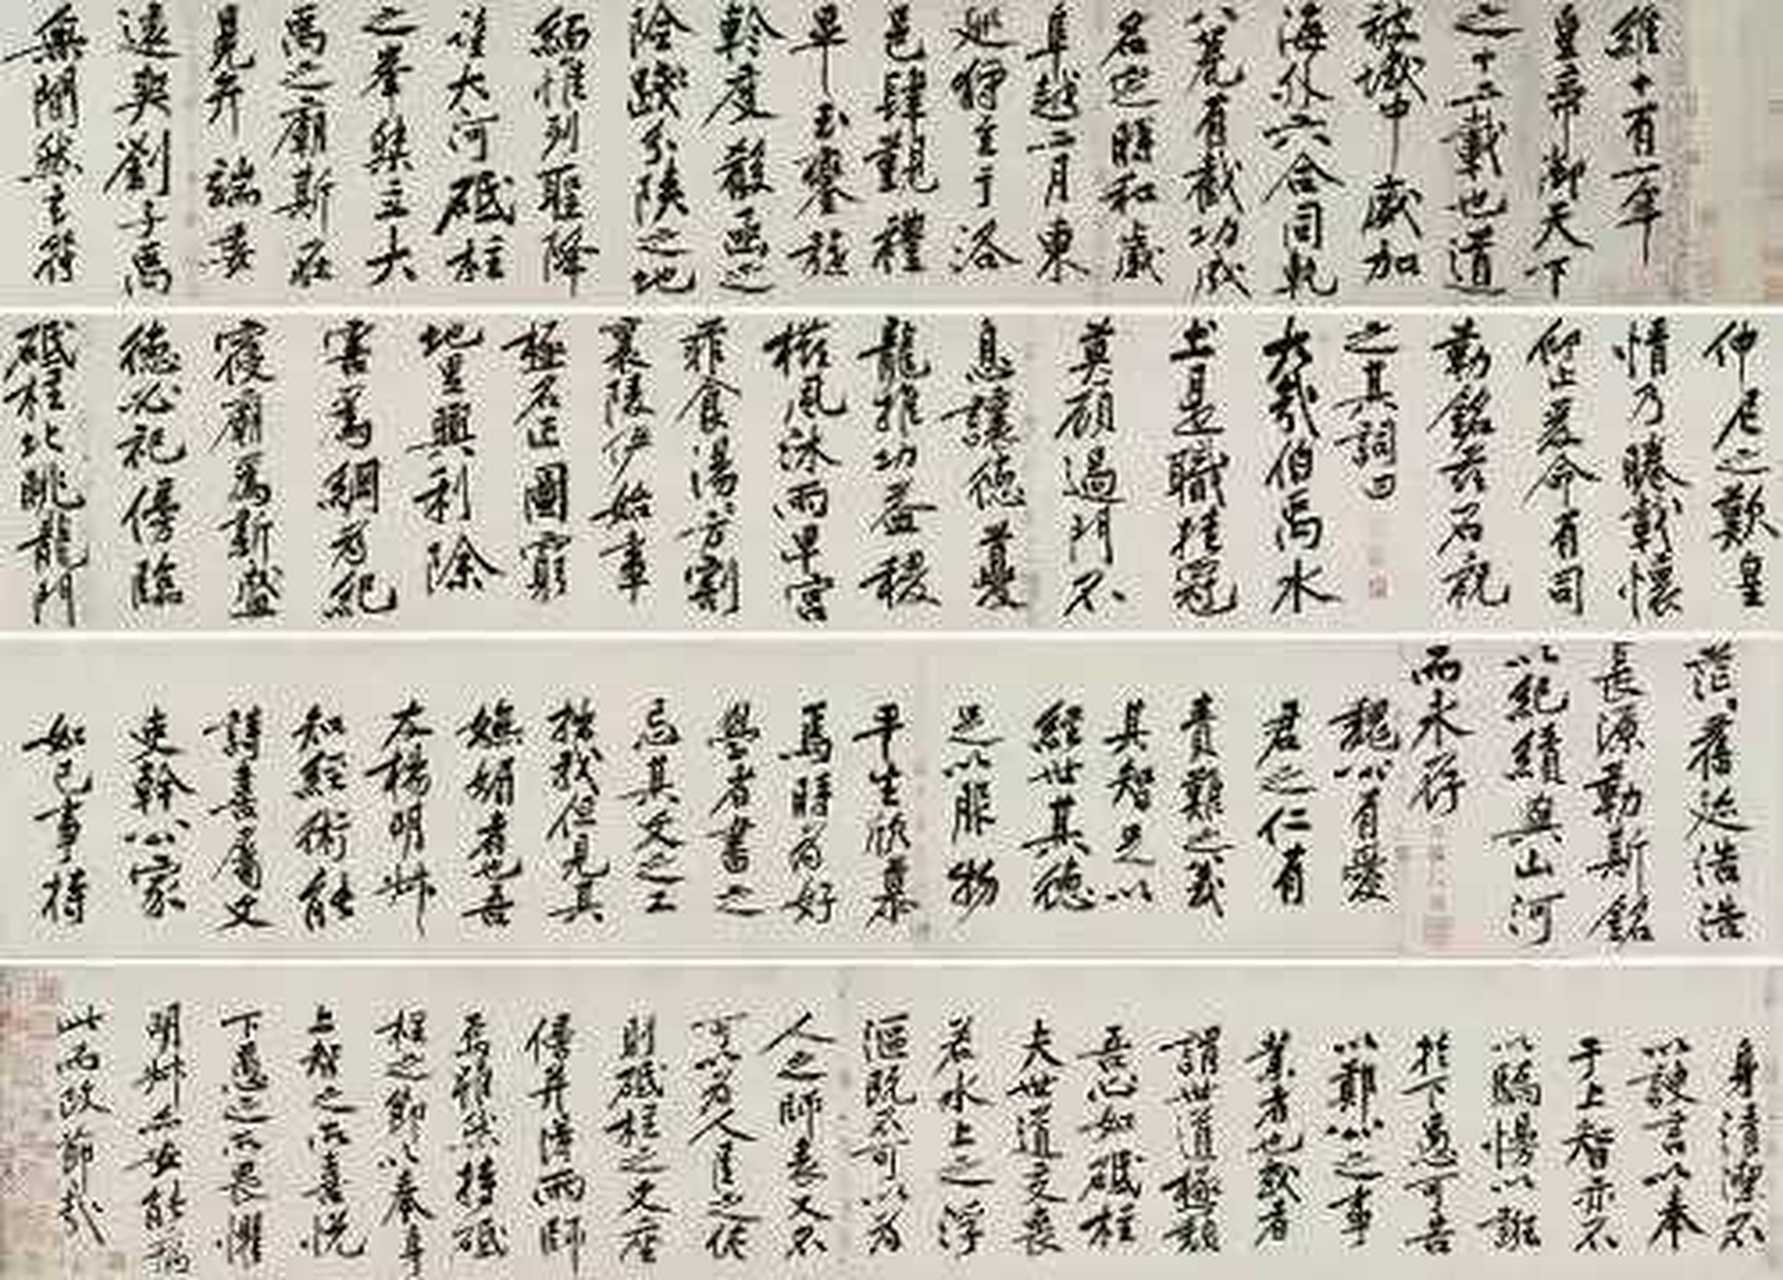 維十有一年
皇帝御天下
之十二載也道
被域中威加
海外六合同軌
八荒有截功成
名定時和歲
阜越二月東
巡狩至于洛
邑肆覲禮
畢玉鑾旋
軫度殽函之
險踐分陝之地
緬惟列聖降
望大河砥柱
之峯桀立大
禹之廟斯在
見弁端委
遠契劉子禹
無間然玄符
仲尼之歎皇
情乃睠載懷
仰止爰命有司
勒銘兹石祝
之其詞曰
大哉伯禹水
土是職挂冠
莫顧過門不
息讓德夔
龍推功益稷
櫛風沐雨卑宮
菲食湯湯方割
襄陵伊始事
極名正圖窮
地里興利除
害爲綱爲紀
寢廟爲新盛
德必祀傍臨
砥柱北眺龍門
茫茫舊迹浩浩
長源勒斯銘
以紀績與山河
而永存
魏公有愛
君之仁有
責難之義
其智足以
經世其德
足以服物
平生欣慕
焉時爲好
學者書之
忘其文之工
拙我但見其
嫵媚者也吾
友楊明叔
知經術能
詩喜屬文
吏幹公家
如己事持
身清潔不
以諛言以奉
于上智亦不
以驕慢以誑
於下愚可告
以鄭公之事
業者也或者
謂世道極頹
吾心如砥柱
夫世道交喪
若水上之浮
漚既不可以爲
人之師表又不
可以爲人臣之佐
則砥柱之文座
傍并得兩師
焉雖然持砥
柱之節以奉身
上智之所喜悅
下愚之所畏懼
明叔亦安能病
此而改節哉